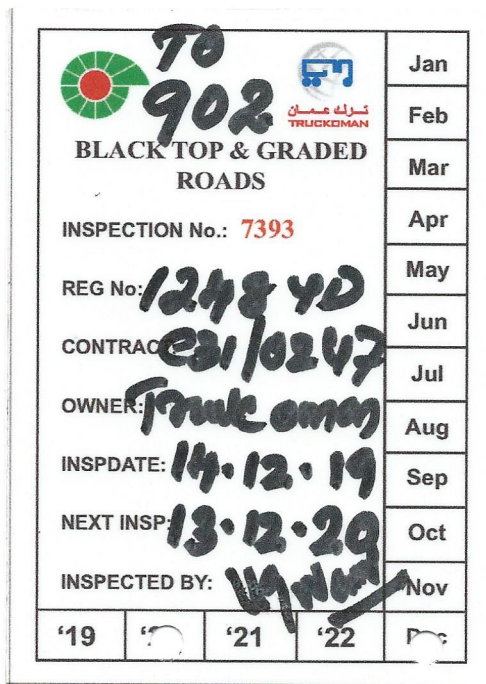 TO
902
تـرك عـمـان
TRUCKOMAN
BLACK TOP & GRADED
ROADS
INSPECTION No.: 7393
REG No: 1248 YD
CONTRACT: C31/0247
OWNER: Truckoman
INSPDATE: 14.12.19
NEXT INSP: 13.12.20
INSPECTED BY:
Jan
Feb
Mar
Apr
May
Jun
Jul
Aug
Sep
Oct
Nov
Dec
'19
'21
'22